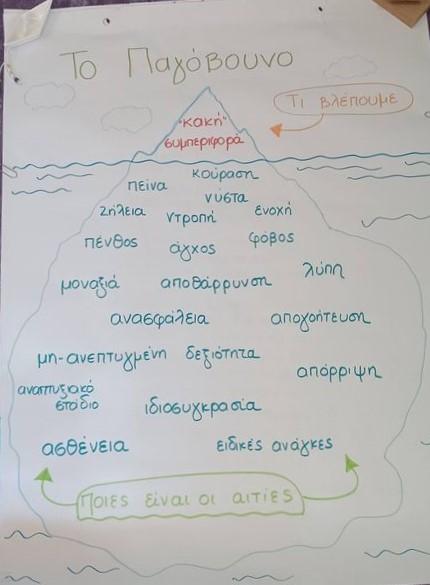 Το Παγόβουνο
Τι βλέπουμε
"κακή"
συμπεριφορά
κούραση
πείνα
νύστα
ζήλεια
ντροπή
ενοχή
πένθος
άγχος
φόβος
μοναξιά
αποθάρρυνση
λύπη
ανασφάλεια
απογοήτευση
μη-ανεπτυγμένη δεξιότητα
απόρριψη
αναπτυξιακό
στάδιο
ιδιοσυγκρασία
ασθένεια
ειδικές ανάγκες
Ποιες είναι οι αιτίες